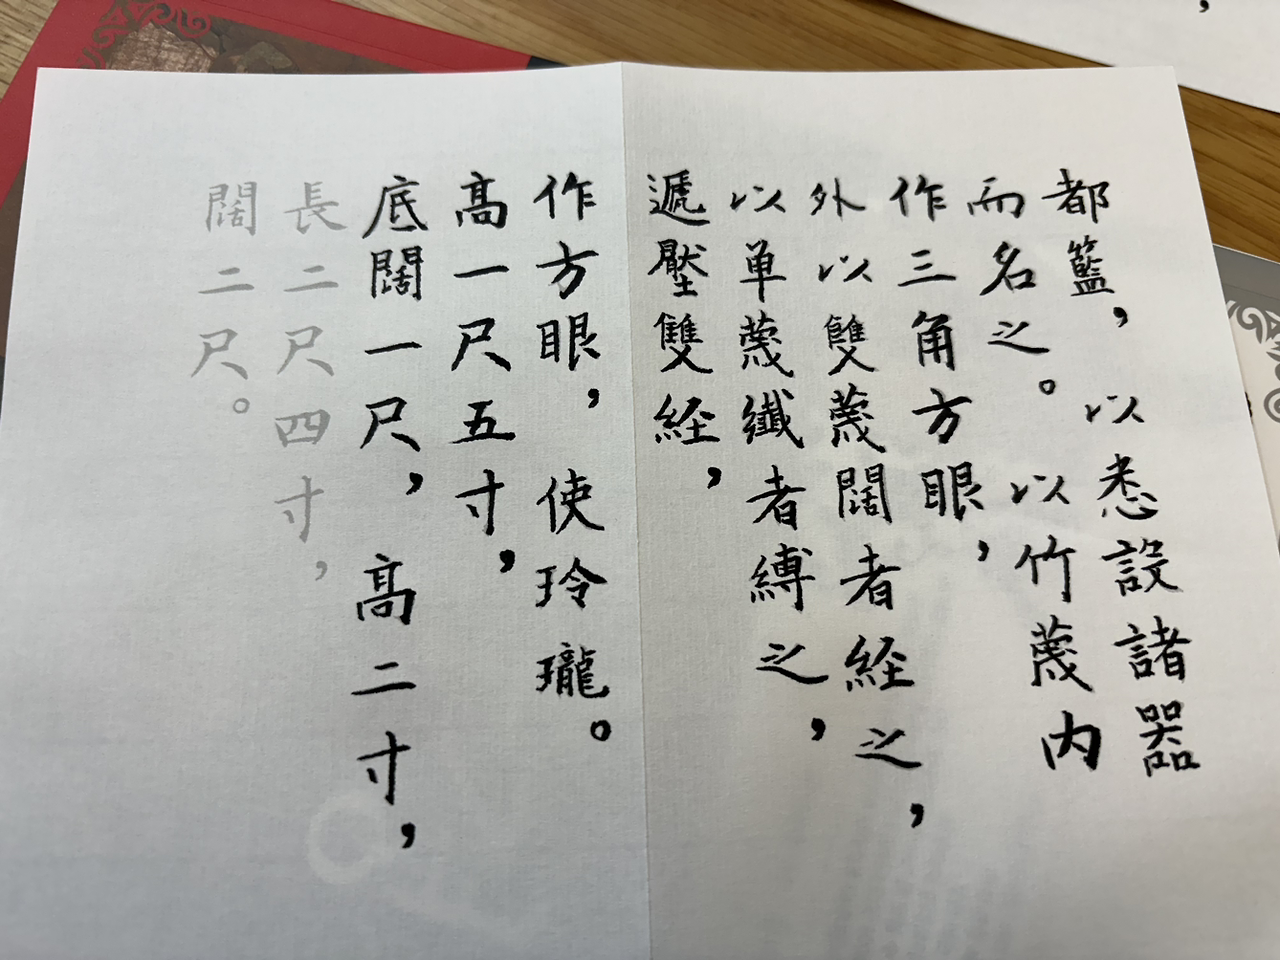 都籃，以悉設諸器
而名之。以竹蔑内
作三角方眼，
外以雙蔑闊者経之，
以単蔑纖者縛之，
遞壓雙経，
作方眼，使玲瓏。
髙一尺五寸，
底闊一尺，髙二寸，
長二尺四寸，
闊二尺。